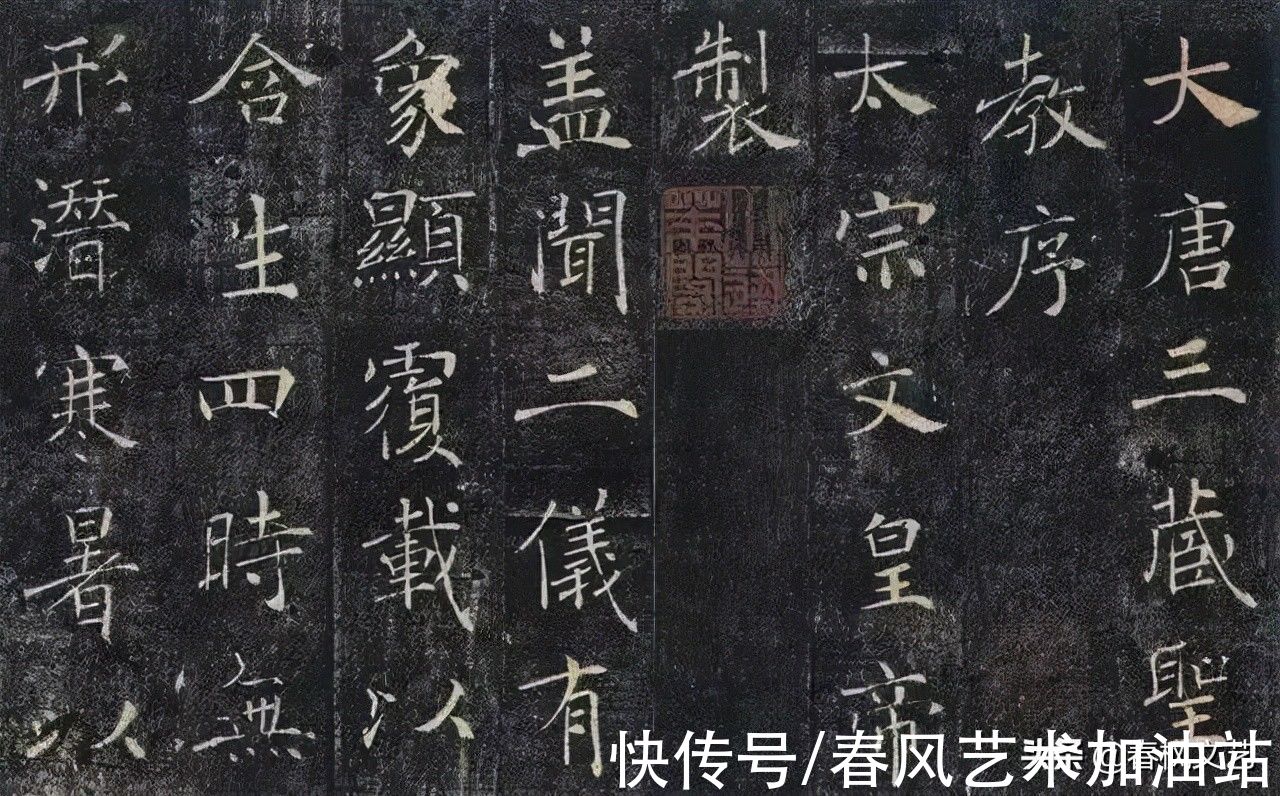 大唐三藏聖
教序
太宗文皇帝
製
蓋聞二儀有
象顯覆載以
含生四時無
形潛寒暑以
快传号/春风艺术加油站